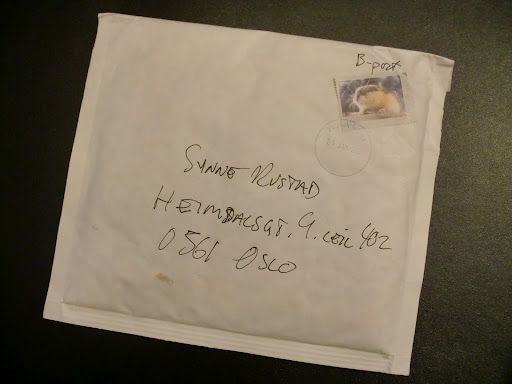 B-post
SYNNE RUSTAD
HEIMDALSGT. 9. LEIL 402
0561 OSLO